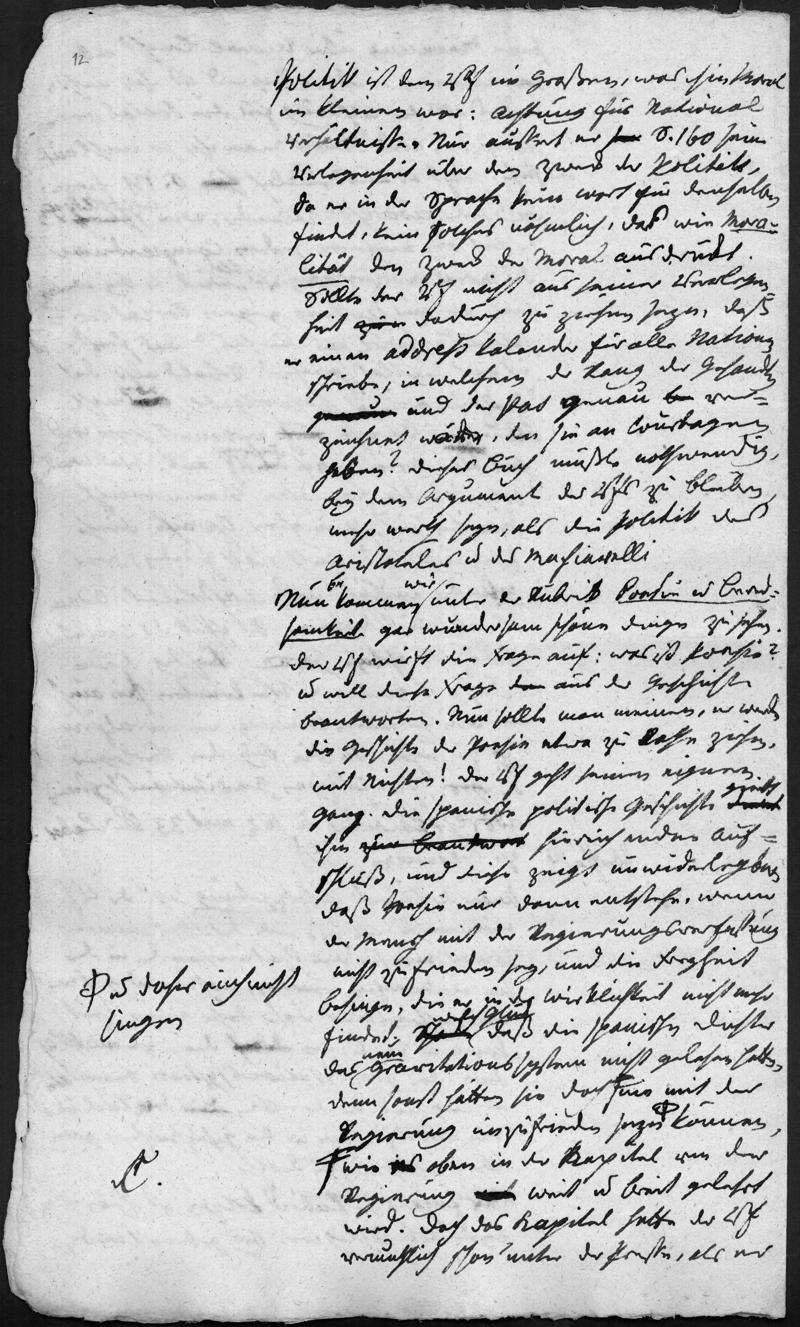 12
Politik ist dem Vf im Großen, was ihm Moral
im kleinen war: Achtung für National
Verhältniße. Nur äußert er S. 160 seine
Verlegenheit über den Zweck der Politik,
da er in der Sprache kein Wort für denselben
findet, kein solches nähmlich, das wie Mora-
lität den Zweck der Moral ausdrükt.
Sollte der Vf nicht aus seiner Verlegen
heit dadurch zu ziehen seyn, daß
er einen Addreß Kalender für alle Nationen
schriebe, in welchem der Rang der Gesandten
und der Pas genau ver-
zeichnet, den sie an Courtagen
geben? Dieses Buch müßte nothwendig,
bey dem Argument des Vfs zu bleiben,
mehr werth seyn, als die Politik des
Aristoteles u des Machiavelli
Nun bekommen wir unter der Rubrik Poesie u Bered-
samkeit gar wundersam schöne Dinge zu sehen.
Der Vf wirft die Frage auf: was ist Poesie?
u will diese Frage aus der Geschichte
beantworten. Nun sollte man meinen, er werde
die Geschichte der Poesie etwa zu Rathe ziehen,
mit nichten! Der Vf geht seinen eignen
Gang. Die spanische politische Geschichte giebt
ihm hinreichenden Auf-
schluß, und diese zeigt unwiderlegbar
daß Poesie nur dann entstehe, wenn
der Mensch mit der Regierungsverfassung
nicht zufrieden sey, und die Freyheit
besinge, die er in der Wirklichkeit nicht mehr
findet; welch Glük daß die spanischen Dichter
das neue Gravitationssystem nicht gelesen hatten,
denn sonst hätten sie doch nie mit der
Regierung unzufrieden seyn können,
u daher auch nicht
singen
wie oben in dem Kapitel von der
Regierung weit u breit gelehrt
wird. Doch das Kapitel hatte der Vf
vermuthlich schon unter der Presse, als er